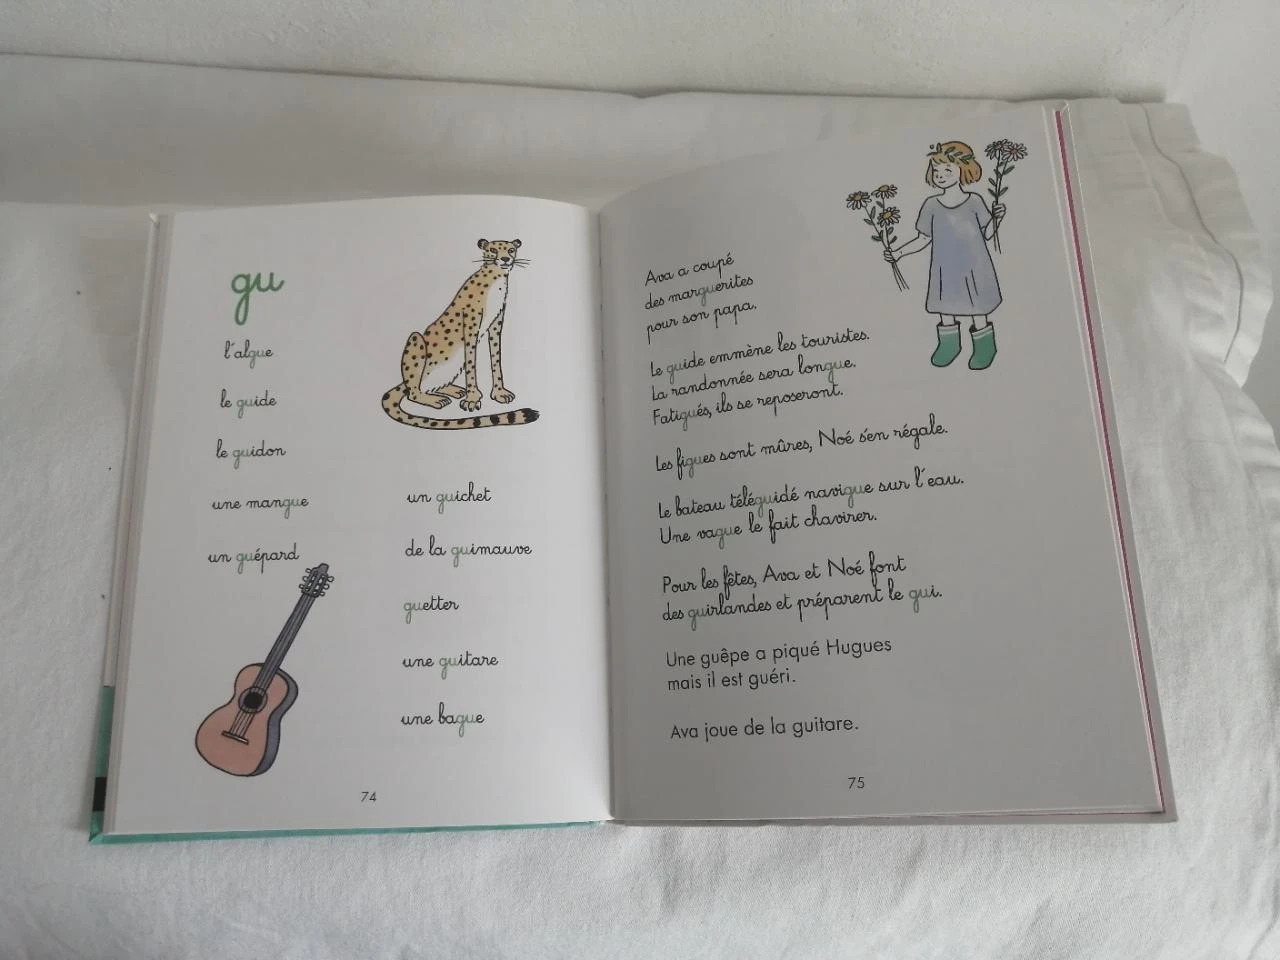 gu
l'algue
le guide
le guidon
une mangue
un guépard
un guichet
de la guimauve
guetter
une guitare
une bague
74
Ava a coupé
des marguerites
pour son papa.
Le guide emmène les touristes.
La randonnée sera longue.
Fatigués, ils se reposeront.
Les figues sont mûres, Noé s'en régale.
Le bateau téléguidé navigue sur l'eau.
Une vague le fait chavirer.
Pour les fêtes, Ava et Noé font
des guirlandes et préparent le gui.
Une guêpe a piqué Hugues
mais il est guéri.
Ava joue de la guitare.
75